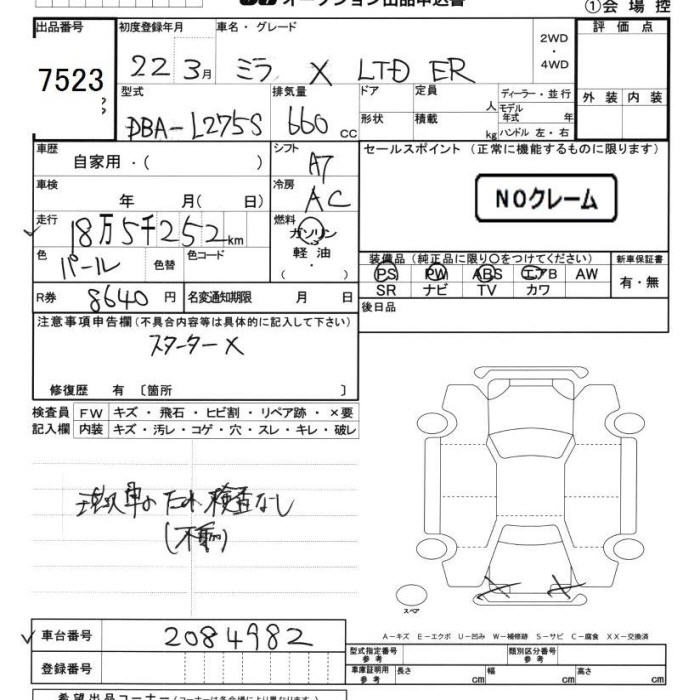 オークション出品申込書
①会場控
出品番号 初度登録年月 車名・グレード 2WD・4WD 評価点
7523 22 3月 ミラ X LTD ER
型式 排気量 ドア 定員 人 ディーラー・並行 外装 内装
DBA-L275S 660 cc 形状 積載 kg モデル年式 年
ハンドル 左・右
車歴 自家用・( ) シフト A7 セールスポイント(正常に機能するものに限ります)
車検 年 月(日) 冷房 AC NOクレーム
走行 18万5千252km 燃料 ガソリン
軽油
・
( )
色 パール 色替 色コード 装備品(純正品に限り○をつけてください) 新車保証書
PS PW ABS エアB AW 有・無
SR ナビ TV カワ
R券 8640円 名変通知期限 月 日 後日品
注意事項申告欄(不具合内容等は具体的に記入して下さい)
スターターX
修復歴 有 〔箇所 〕
検査員 FW キズ・飛石・ヒビ割・リペア跡・×要
記入欄 内装 キズ・汚レ・コゲ・穴・スレ・キレ・破レ
現状車のため検査なし
(不動)
X X
スペア
A-キズ E-エクボ U-凹み W-補修跡 S-サビ C-腐食 XX-交換済
車台番号 2084982 型式指定番号 参考 類別区分番号 参考
登録番号 車庫証明用 参考 長さ cm 幅 cm 高さ cm
希望出品コーナー(コーナーは各会場により異なります)